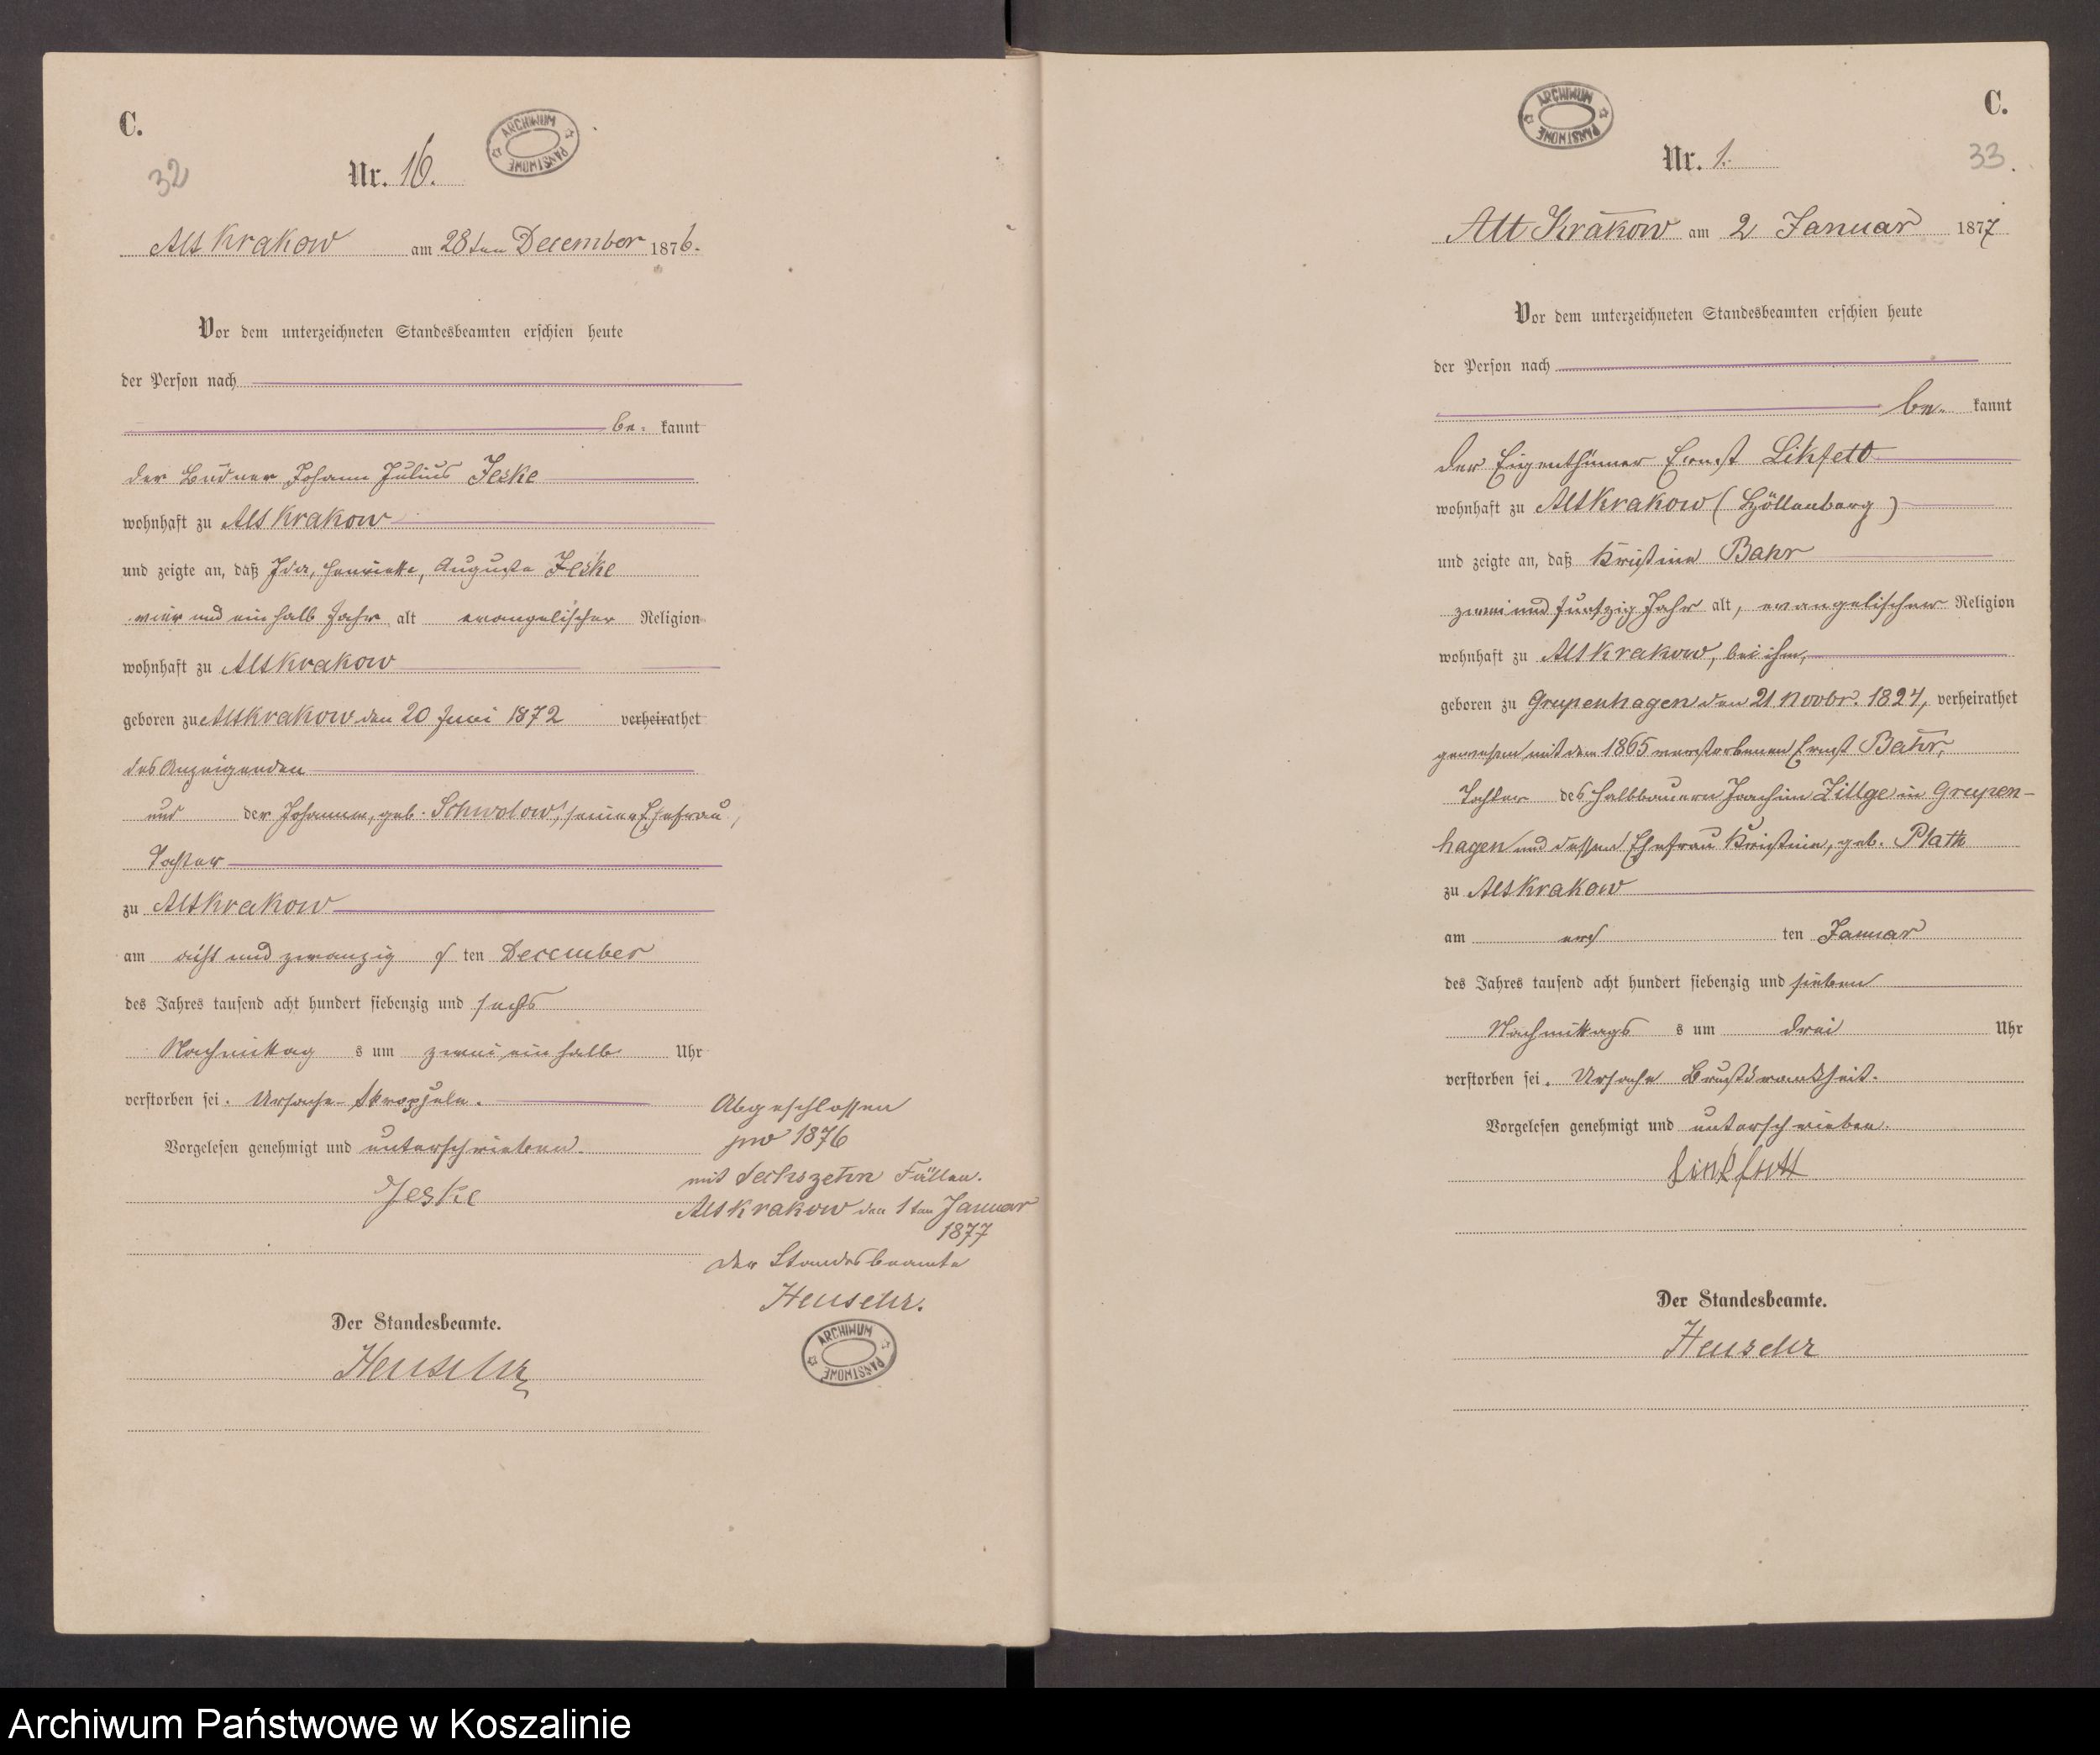 C.
32
Nr. 16.
ARCHIWUM PAŃSTWOWE
Alt Krakow am 28ten December 1876.
Vor dem unterzeichneten Standesbeamten erschien heute
der Person nach
be- kannt
der Büdner Johann Julius Jeske
wohnhaft zu Alt Krakow
und zeigte an, daß Ida, Henriette, Auguste Jeske
vier und ein halb Jahr, alt evangelischer Religion
wohnhaft zu Altkrakow
geboren zu Altkrakow den 20 Juni 1872 verheirathet
des Anzeigenden
und der Johanna, geb. Schwolow, seiner Ehefrau,
Tochter
zu Altkrakow
am acht und zwanzigsten December
des Jahres tausend acht hundert siebenzig und sechs
Nachmittags um zwei ein halb Uhr
verstorben sei. Ursache
Vorgelesen genehmigt und unterschrieben.
Jeske
Der Standesbeamte.
Abgeschlossen
pro 1876
mit sechszehn Fällen.
Altkrakow den 1ten Januar
1877
Der Standesbeamte
ARCHIWUM PAŃSTWOWE
C.
33.
Nr. 1.
ARCHIWUM PAŃSTWOWE
Alt Krakow am 2 Januar 1877
Vor dem unterzeichneten Standesbeamten erschien heute
der Person nach
be- kannt
der Eigenthümer Ernst Likfett
wohnhaft zu Altkrakow (Höllenberg)
und zeigte an, daß Kristine Bahr
zwei und fünfzig Jahr alt, evangelischer Religion
wohnhaft zu Altkrakow, bei ihm,
geboren zu Grupenhagen den 21 Novbr. 1824, verheirathet
gewesen mit dem 1865 verstorbenen Ernst Bahr,
Tochter des Halbbauern Joachim Zillge in Grupen-
hagen und dessen Ehefrau Kristine, geb. Plath
zu Altkrakow
am ersten Januar
des Jahres tausend acht hundert siebenzig und sieben
Nachmittags um drei Uhr
verstorben sei. Ursache Brustkrankheit.
Vorgelesen genehmigt und unterschrieben.
Der Standesbeamte.
Archiwum Państwowe w Koszalinie